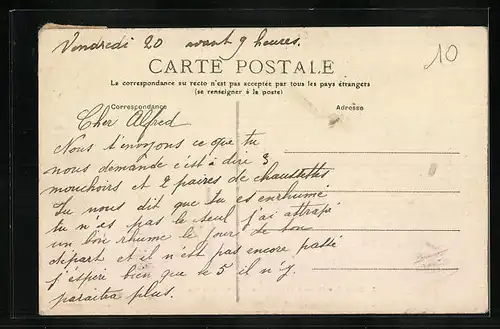 Vendredi 20 avant 9 heures.
10
CARTE POSTALE
La correspondance au recto n'est pas acceptée par tous les pays étrangers
(se renseigner à la poste)
Correspondance
Adresse
Cher Alfred
Nous t'envoyons ce que tu
nous demande c'est à dire 3
mouchoirs et 2 paires de chaussettes
Tu nous dit que tu es enrhumé
tu n'es pas le seul j'ai attrapé
un bon rhume le jour de ton
départ et il n'est pas encore passé
j'espère bien que le 5 il n'y
paraitra plus.